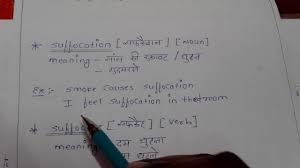 * suffocation [सफोकेशन] [noun]
meaning - सांस की रुकावट / घुटन
- दम घुटना
Ex:- smoke causes suffocation
I feel suffocation in that room
* suffocate [सफोकेट] [verb]
meaning - दम घुटना
घोटना